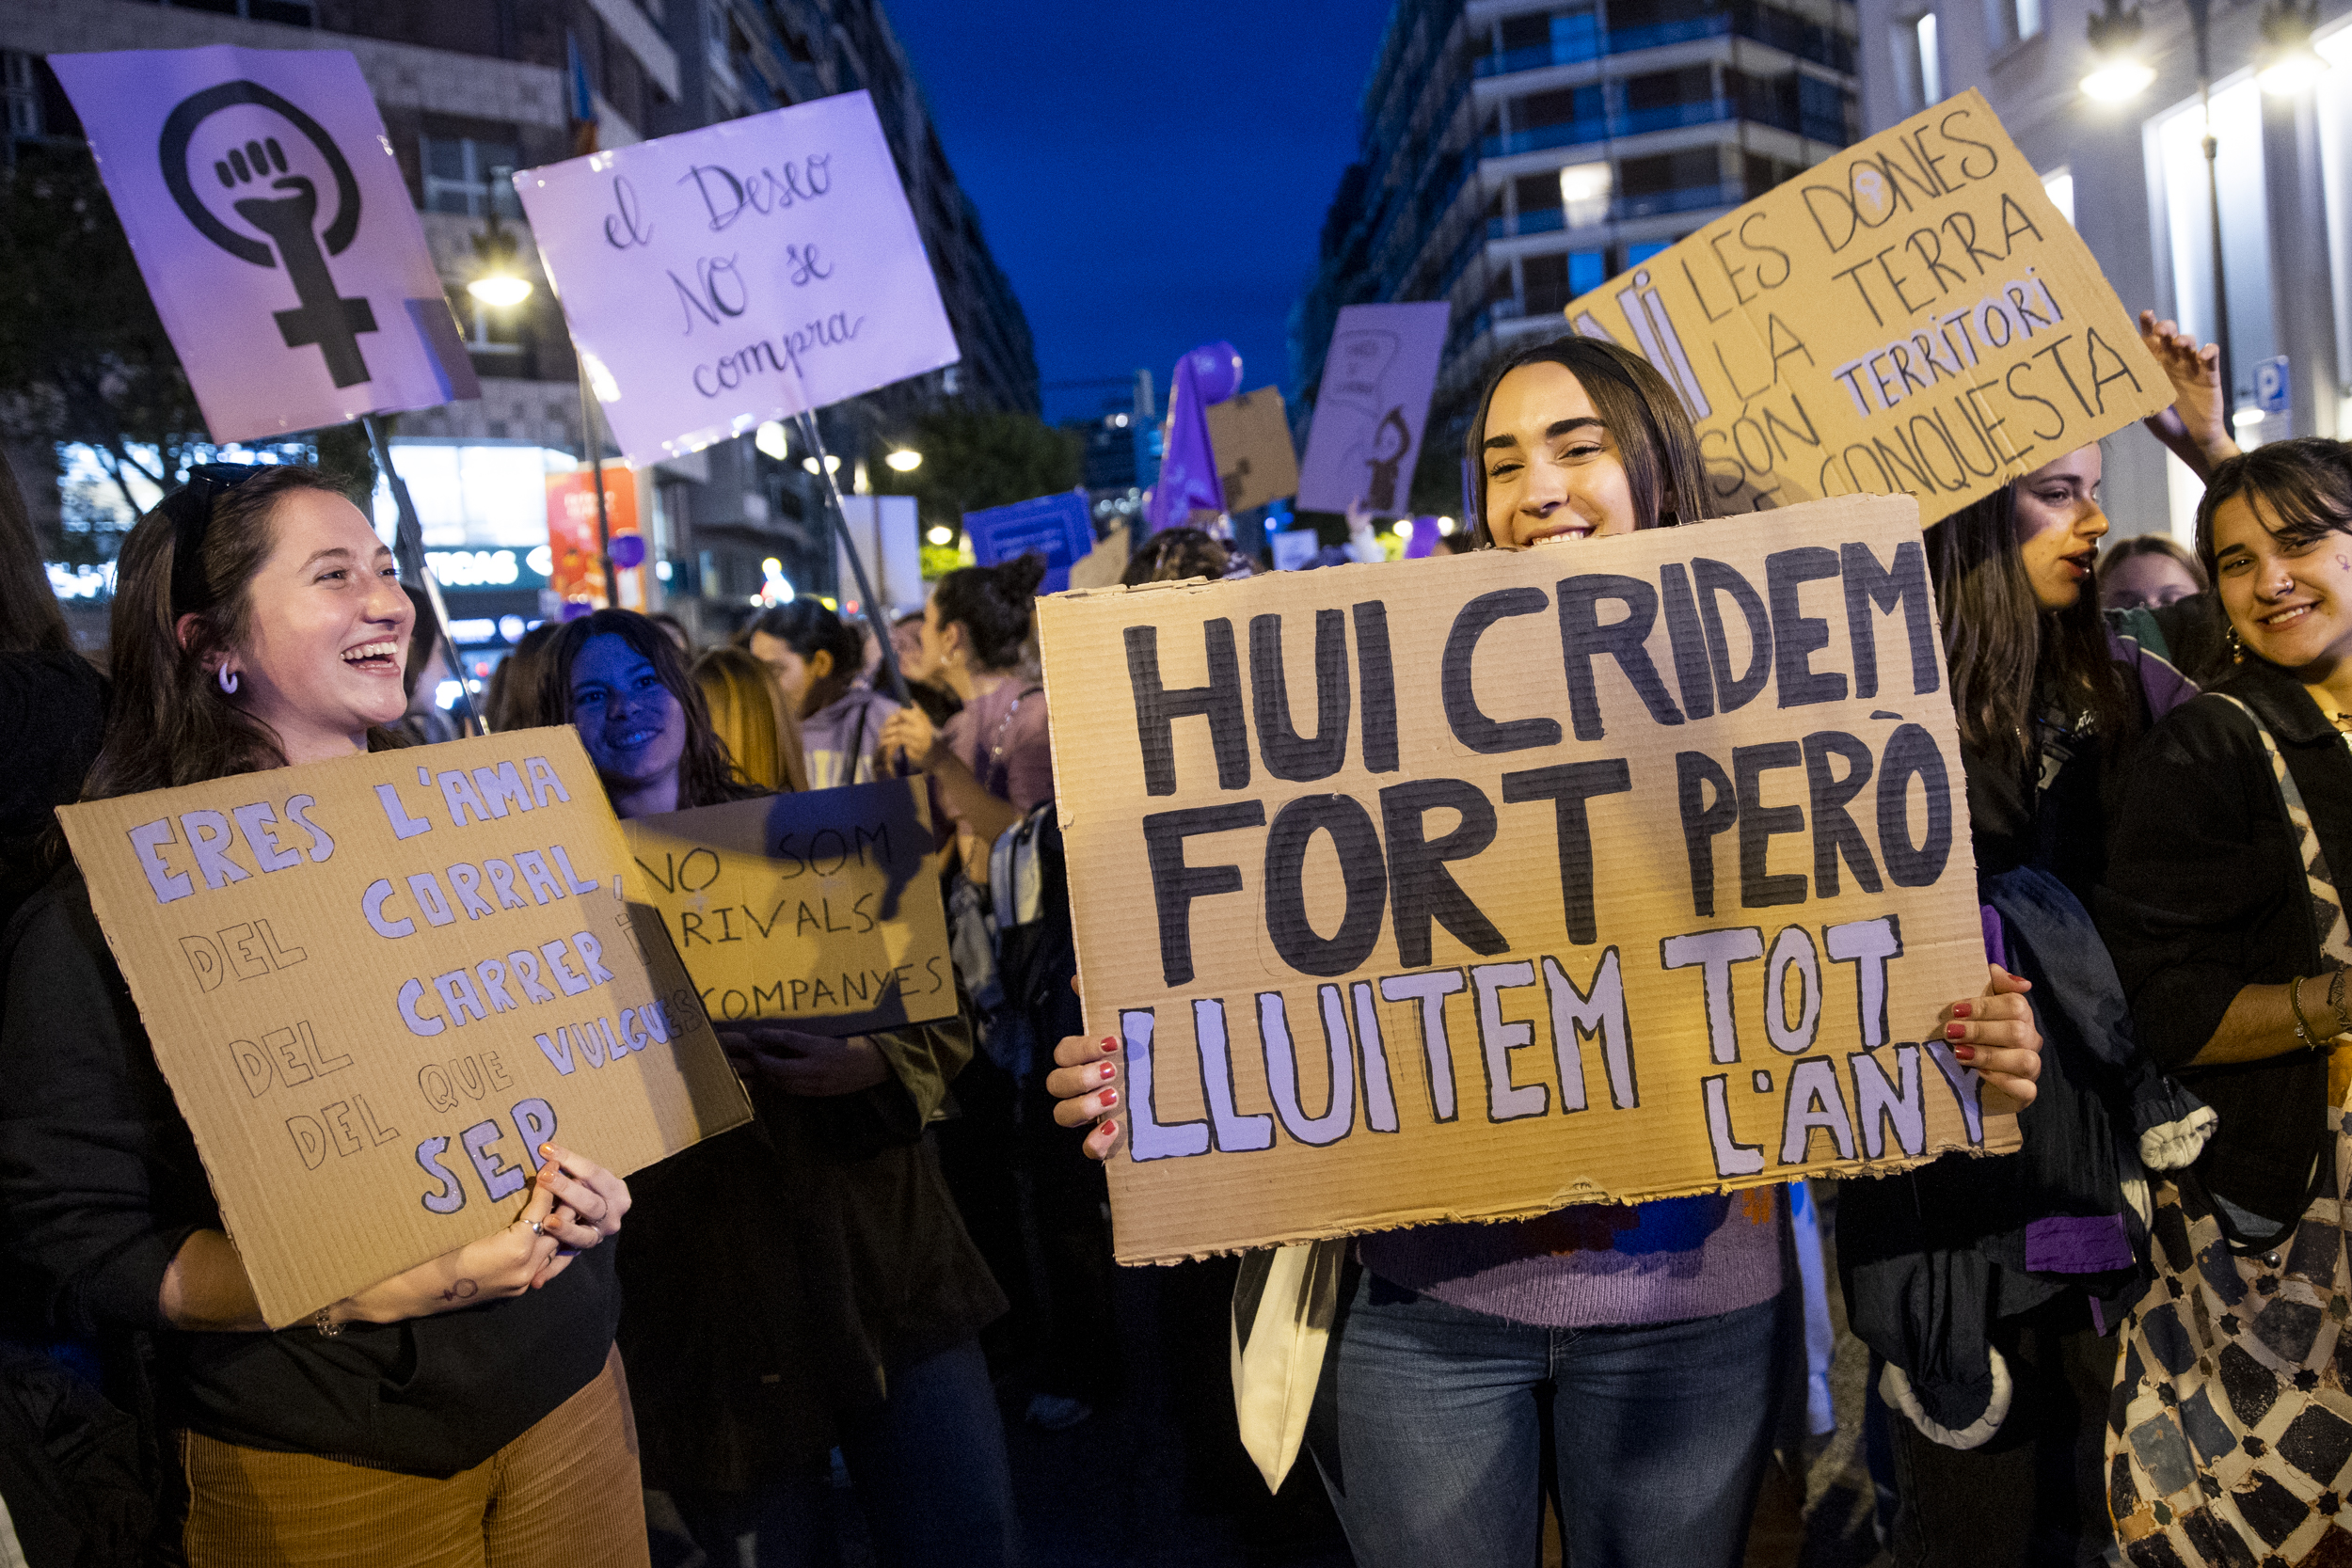 el Deseo
NO se
compra
NI LES DONES
LA TERRA
SÓN TERRITORI
DE CONQUESTA
ERES L'AMA
DEL CORRAL,
DEL CARRER i
DEL QUE VULGUES
SER
NO SOM
RIVALS
COMPANYES
HUI CRIDEM
FORT PERÒ
LLUITEM TOT
L'ANY
P